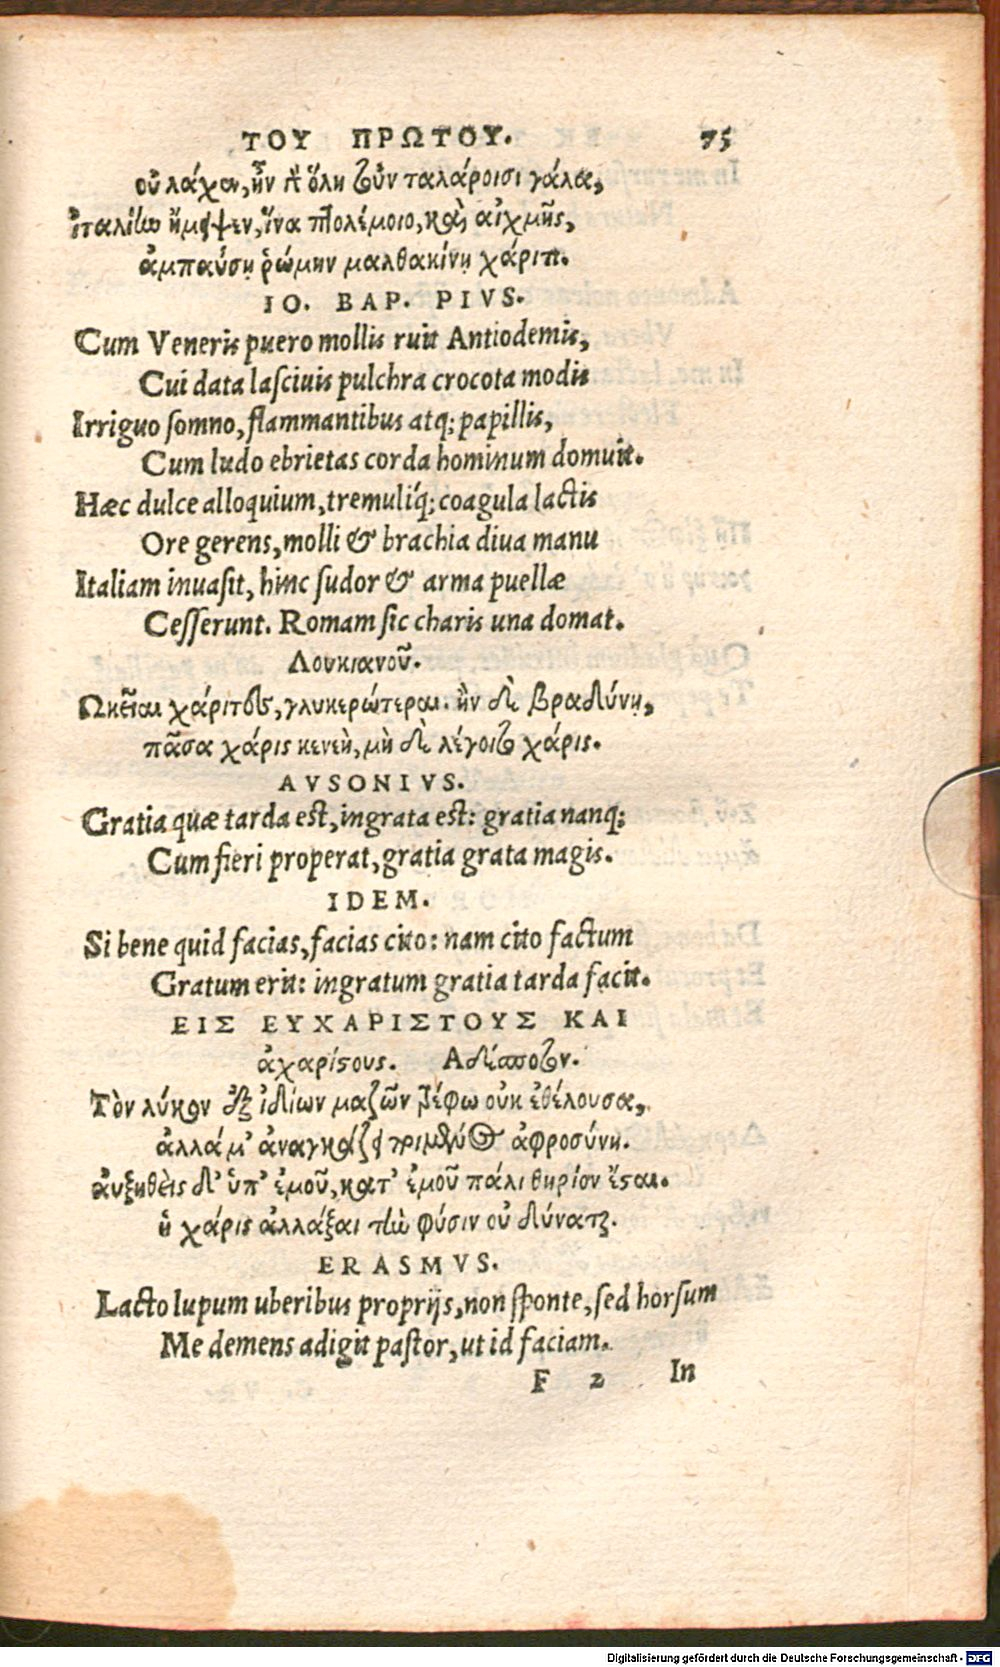 ΤΟΥ ΠΡΩΤΟΥ. 75
οὐ λάχον, ἢν ἐπ᾽ ὅλη σὺν ταλάροισι γάλα,
ἰταλίην ἤμειψεν, ἵνα πτολέμοιο, καὶ αἰχμῆς,
ἀμπαύσῃ ῥώμην μαλθακίνῃ χάριτι.
IO. BAP. PIVS.
Cum Veneris puero mollis ruit Antiodemis,
Cui data lasciuis pulchra crocota modis
Irriguo somno, flammantibus atq; papillis,
Cum ludo ebrietas corda hominum domuit.
Hæc dulce alloquium, tremuliq́; coagula lactis
Ore gerens, molli & brachia diua manu
Italiam inuasit, hinc sudor & arma puellæ
Cesserunt. Romam sic charis una domat.
Λουκιανοῦ.
Ωκεῖαι χάριτες, γλυκερώτεραι. ἢν δὲ βραδύνῃ,
πᾶσα χάρις κενεὴ, μὴ δὲ λέγοιτο χάρις.
AVSONIVS.
Gratia quæ tarda est, ingrata est: gratia nanq;
Cum fieri properat, gratia grata magis.
IDEM.
Si bene quid facias, facias cito: nam cito factum
Gratum erit: ingratum gratia tarda facit.
ΕΙΣ ΕΥΧΑΡΙΣΤΟΥΣ ΚΑΙ
ἀχαρίστους. Αδέσποτον.
Τὸν λύκον ἐξ ἰδίων μαζῶν τρέφω οὐκ ἐθέλουσα,
ἀλλά μ᾽ ἀναγκάζει ποιμένος ἀφροσύνη.
αὐξηθεὶς δ᾽ ὑπ᾽ ἐμοῦ, κατ᾽ ἐμοῦ πάλι θηρίον ἔσαι.
ἡ χάρις ἀλλάξαι τὴν φύσιν οὐ δύναται.
ERASMVS.
Lacto lupum uberibus proprijs, non sponte, sed horsum
Me demens adigit pastor, ut id faciam.
F 2 In
Digitalisierung gefördert durch die Deutsche Forschungsgemeinschaft - DFG